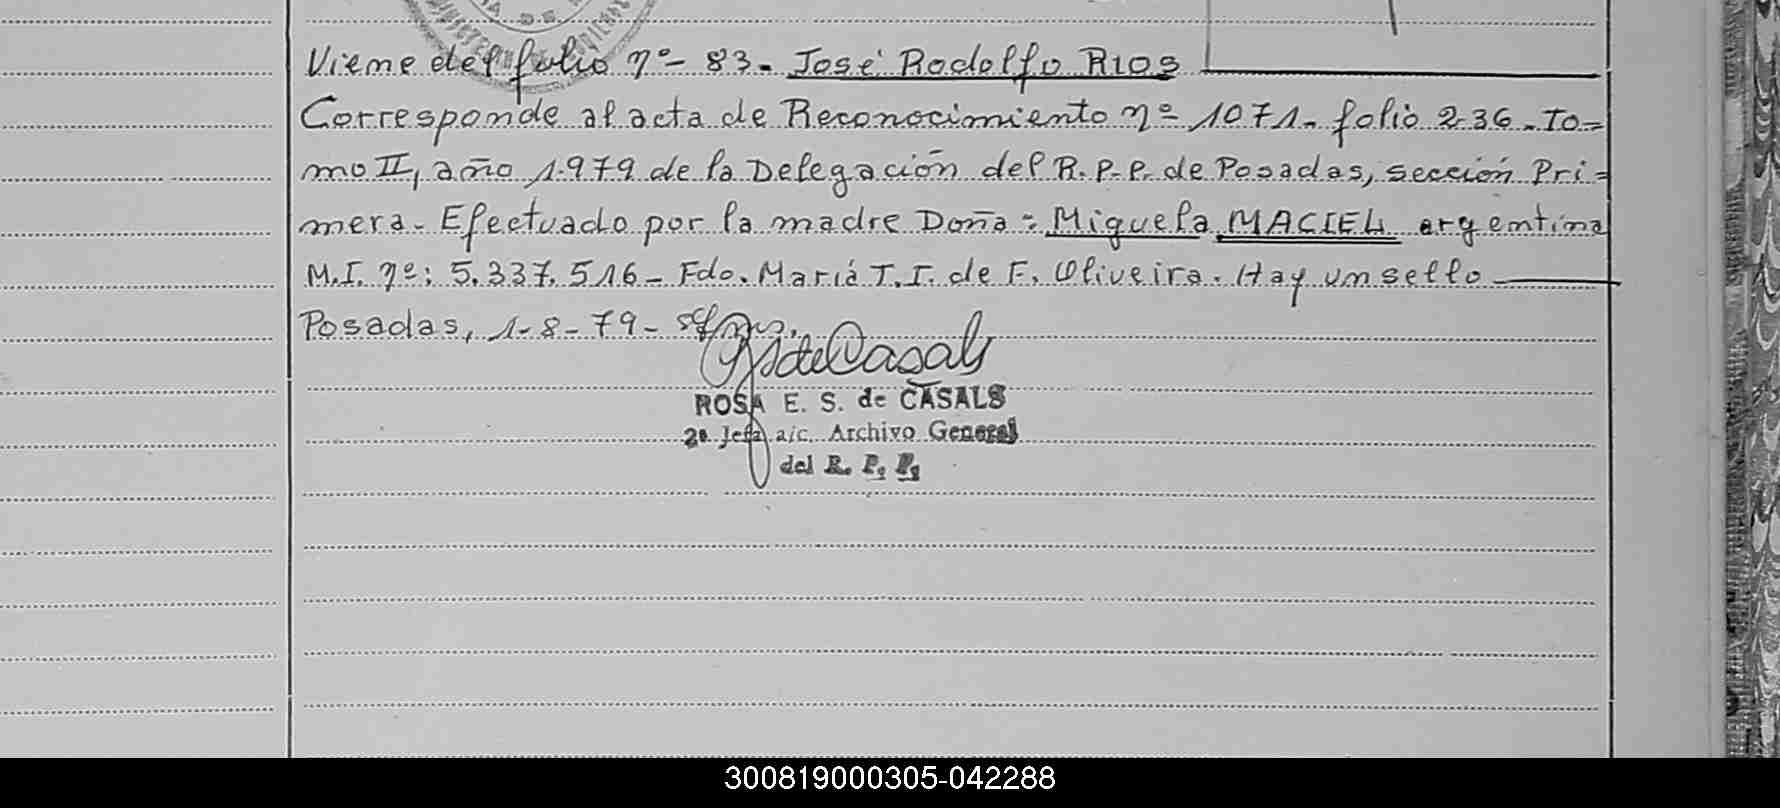 Viene del folio nº- 83- José Rodolfo RIOS
Corresponde al acta de Reconocimiento nº 1071- folio 236- To=
mo II, año 1.979 de la Delegación del R.P.P. de Posadas, sección Pri=
mera- Efectuado por la madre Doña: Miguela MACIEL argentina
M.I. nº: 5.337.516- Fdo. María T.I. de F. Oliveira. Hay un sello
Posadas, 1-8-79-
ROSA E. S. de CASALS
2ª Jefa a/c. Archivo General
del R. P. P.
300819000305-042288